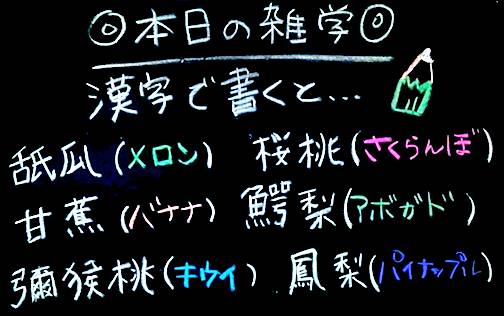 ◎本日の雑学◎
漢字で書くと…
舐瓜(メロン) 桜桃(さくらんぼ)
甘蕉(バナナ) 鰐梨(アボガド)
彌猴桃(キウイ) 鳳梨(パイナップル)